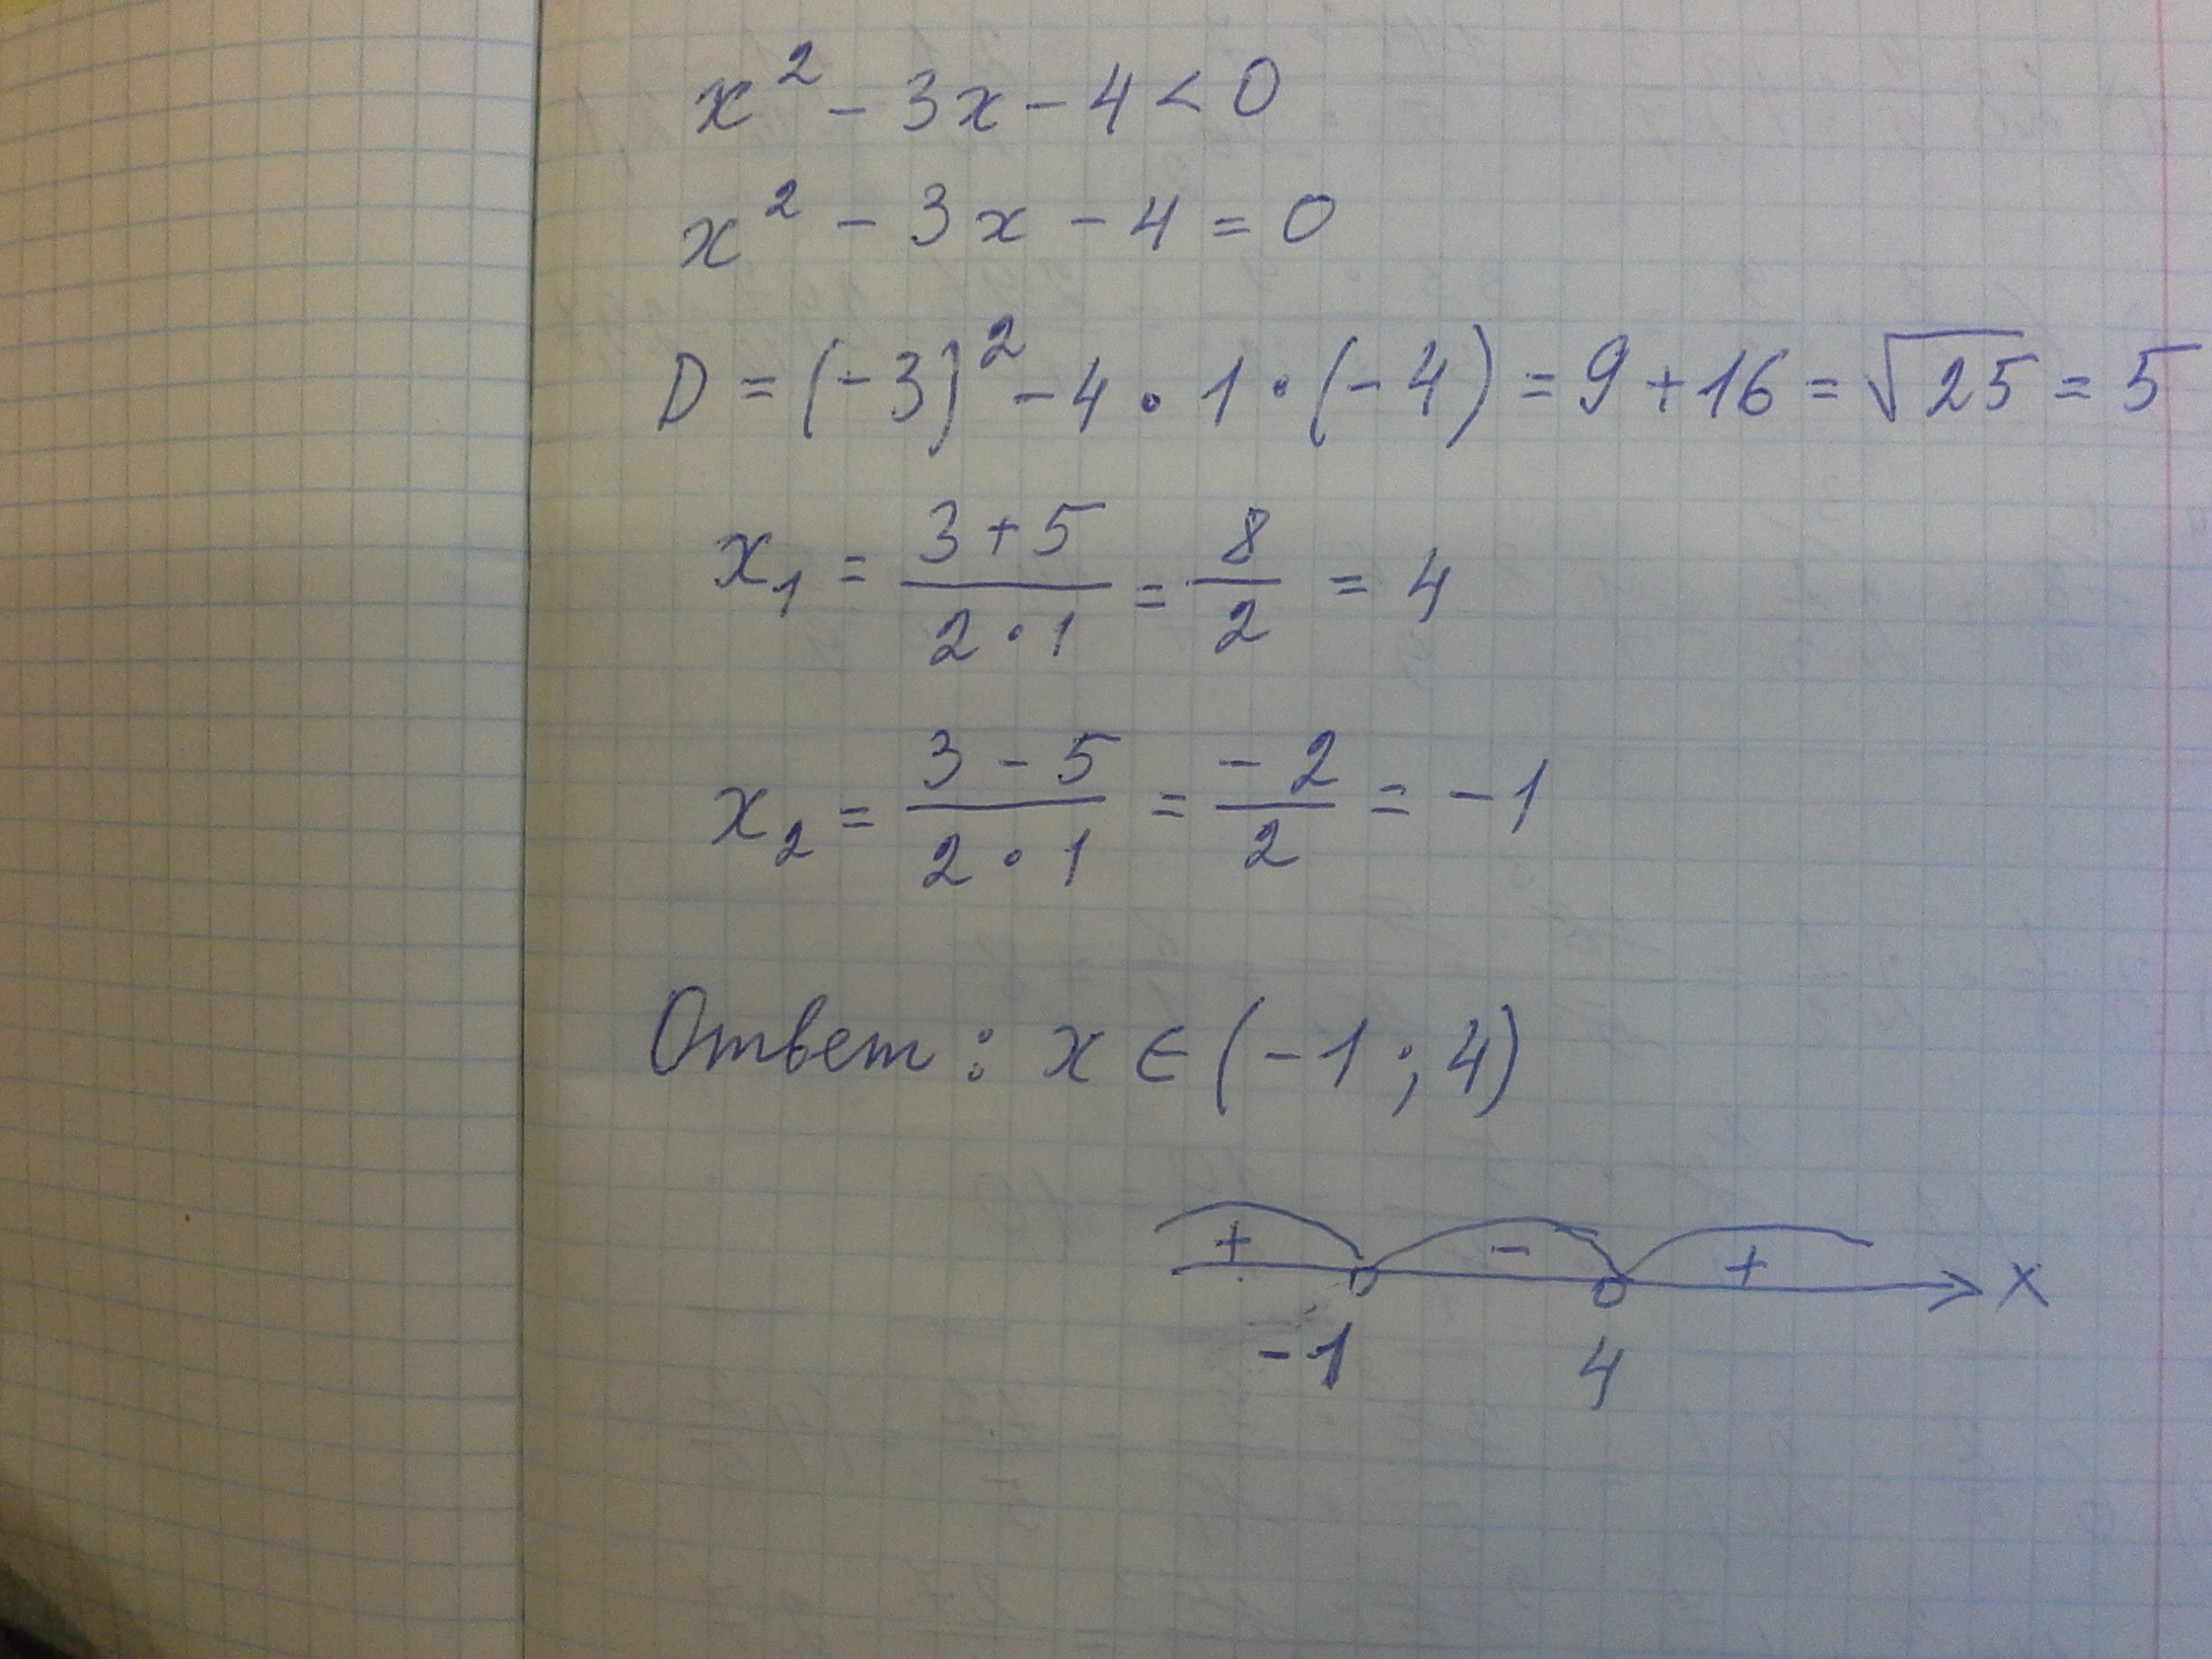 x² - 3x - 4 < 0
x² - 3x - 4 = 0
D = (-3)² - 4 • 1 • (-4) = 9 + 16 = √25 = 5
x₁ = (3 + 5)/(2 • 1) = 8/2 = 4
x₂ = (3 - 5)/(2 • 1) = -2/2 = -1
Ответ: x ∈ (-1; 4)
+ - + x
-1 4